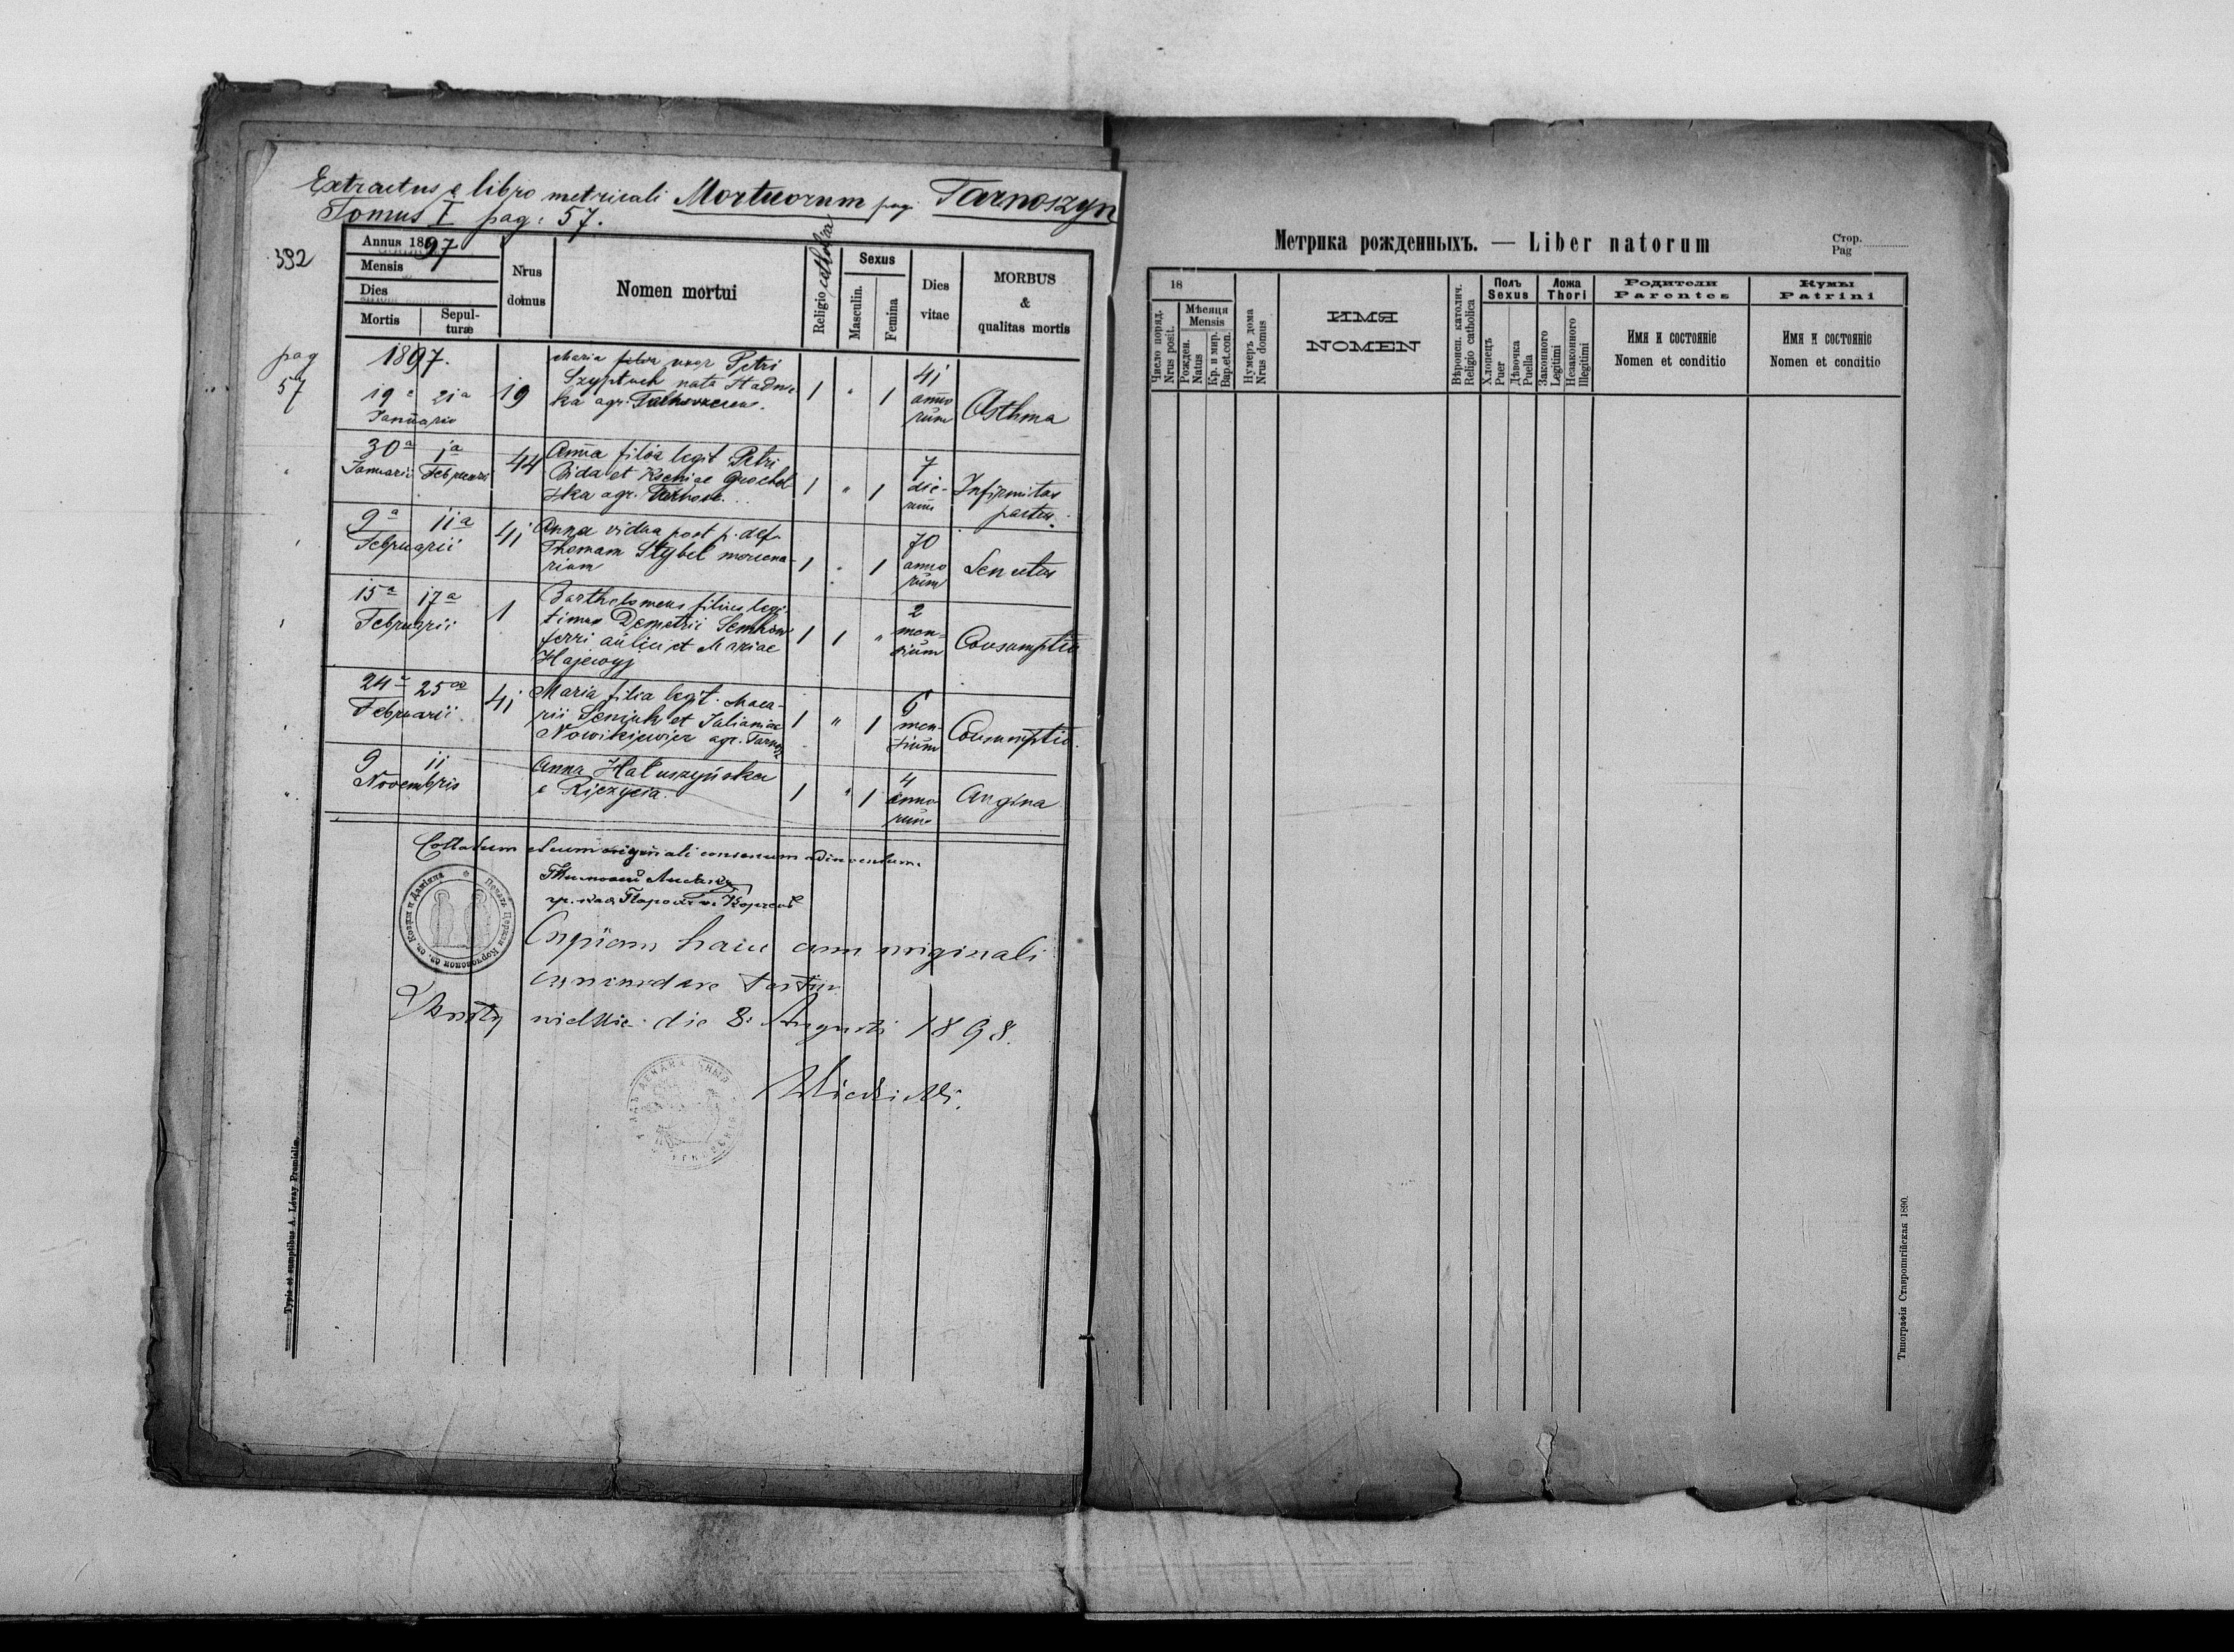 Extractus e libro metricali Mortuorum pag. Tarnoszyn
Tomus I pag: 57.
392
Annus 1897
Mensis
Dies
Mortis
Sepulturæ
Nrus domus
Nomen mortui
Religio catholica
Sexus
Masculin.
Femina
Dies vitae
MORBUS & qualitas mortis
pag 57
1897.
19a 21a Januario
19
Maria uxor Petri
Szyptuch nata Stadnic
ka agr.
1 " 1
41 anno rum
Asthma
30a Januarii 1a Februarii
44
Anna filia legit. Petri
Bida et Kseniae Grochol
ska agr.
1 " 1
7 die- rum
Infirmitas partus.
9a 11a Februarii
41
Anna vidua post p. def.
Thomam Stybel mercena-
rium
1 " 1
70 anno rum
Senectus
15a 17a Februarii
1
Bartholomeus filius legi-
timus Demetrii Semkow
ferri aulici et Mariae
1 1 "
2 men- sium
Consumptio
24a 25a Februarii
41
Maria filia legit. Maca-
rii Seniuk et Julianiae
Nowikiewicz agr. Tarnosz
1 " 1
6 men- sium
Consumptio.
9 11 Novembris
Anna Hałuszyńska
e Rzeczyca.
1 " 1
4 anno rum
Angina
Collatum et cum originali consonum adinventum.
Печать Церкви Корчовской св. Козмы и Даміяна
гр. кат. Парох
Copiam hanc cum originali
concordare testor
wielkie die 8. Augusti 1898.
Typis et sumptibus A. Lévay Premisliæ.
Метрика рожденныхъ. — Liber natorum
Стор.
Pag
18
Число поряд.
Nrus posit.
Мѣсяця
Mensis
Рожден.
Natus
Кр. и мир.
Bap.et.con.
Нумеръ дома
Nrus domus
ИМЯ
NOMEN
Вѣроисп. католич.
Religio catholica
Полъ
Sexus
Хлопецъ
Puer
Дѣвочка
Puella
Ложа
Thori
Законного
Legitimi
Незаконного
Illegitimi
Родители
Parentes
Имя и состояніе
Nomen et conditio
Кумы
Patrini
Имя и состояніе
Nomen et conditio
Типографія Ставропигійская 1890.